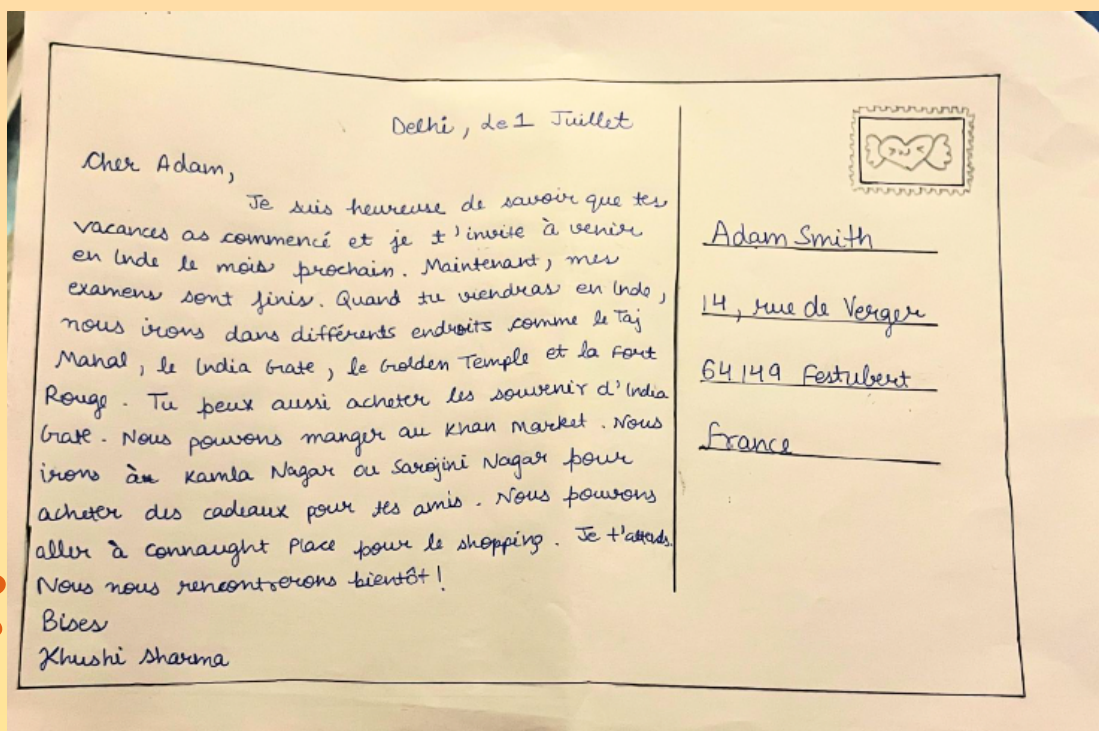 Delhi, le 1 Juillet
Cher Adam,
Je suis heureuse de savoir que tes
vacances as commencé et je t'invite à venir
en Inde le mois prochain. Maintenant, mes
examens sont finis. Quand tu viendras en Inde,
nous irons dans différents endroits comme le Taj
Mahal, le India Grate, le Golden Temple et la Fort
Rouge. Tu peux aussi acheter les souvenir d'India
Grate. Nous pouvons manger au Khan Market. Nous
irons à Kamla Nagar ou Sarojini Nagar pour
acheter des cadeaux pour tes amis. Nous pouvons
aller à Connaught Place pour le shopping. Je t'attends.
Nous nous rencontrerons bientôt!
Bises
Khushi Sharma
Adam Smith
14, rue de Verger
64149 Festubert
France